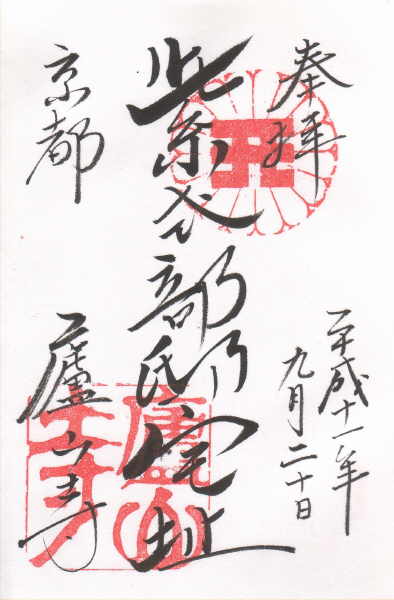 奉拝
平成十一年
九月二十日
紫式部邸宅址
京都
廬山寺
廬山寺